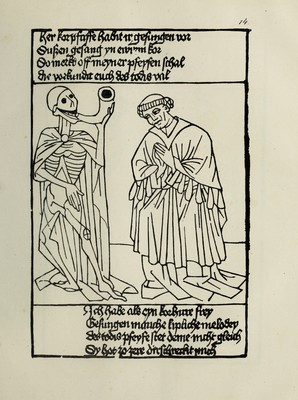 14.
Her korpfaffe habit ir gesungen vor
Sußen gesang yn ewrm kor
So merkt off meyner pfeyfen schal
die vorkundit euch des todis val
Ich habe als eyn korhirre frey
Gesungen manche lipliche melodey
Des todis pfeyfe stet deme nicht gleich
Sy hot zo zere dirschreckt mich